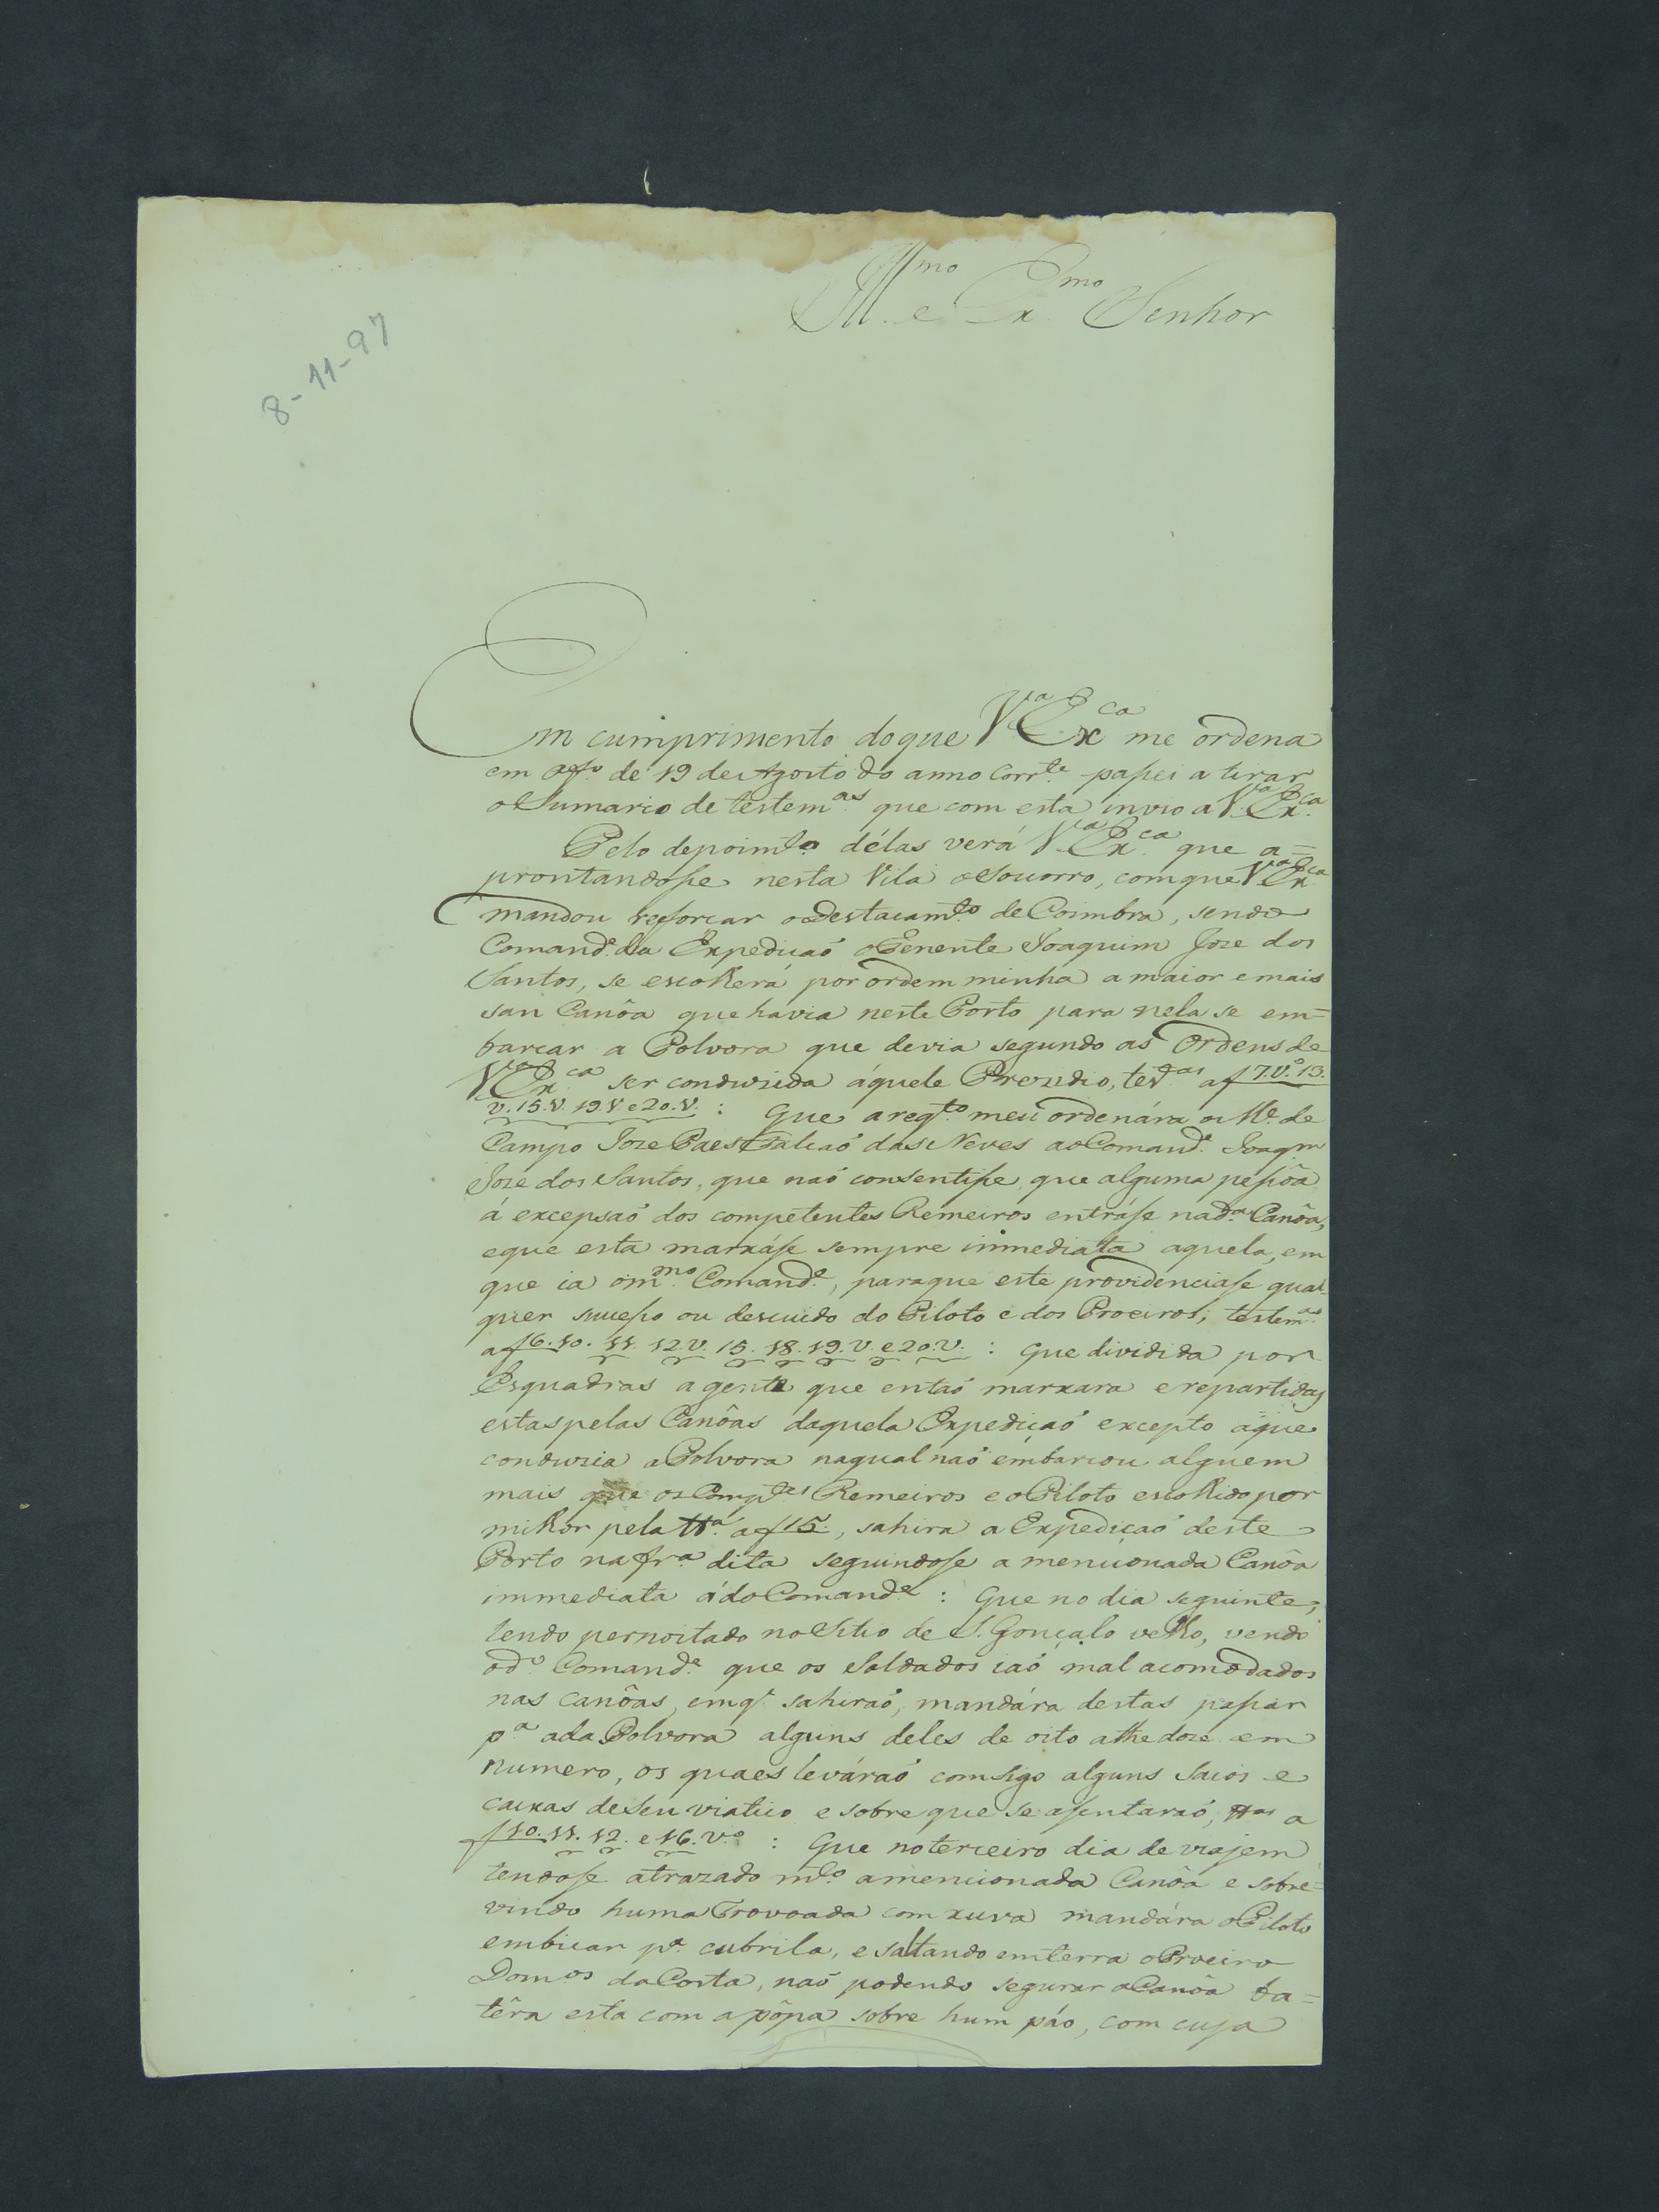 Ill.mo e Ex.mo Senhor
8-11-97
Em cumprimento do que V.a Ex.ca me ordena
em off.o de 19 de Agosto do anno Corr.te pasei a tirar
o Sumario de testem.as que com esta invio a V.a Ex.ca
Pelo depoim.to délas verá V.a Ex.ca que a=
prontandose nesta Vila o Socorro, com que V.a Ex.ca
mandou reforcar o Destacam.to de Coimbra, sendo
Comand.e da Expedicaó o Tenente Joaquim Joze dos
Santos, se escolherá por ordem minha a maior e mais
san Canôa que havia neste Porto para nela se em=
barcar a Polvora que devia segundo as Ordens de
V.a Ex.ca ser condusida áquele Presidio, test.as a f 7.v.o 13.
v. 15. v. 19 v. e 20. v. : Que a reqt.o meu ordenára o M.e de
Campo Joze Paes Falcaó das Neves ao Comand.e Joaqm
Joze dos Santos, que naó consentise, que alguma pesôa
á excepsaó dos competentes Remeiros entráse na d.a Canôa,
e que esta marxáse sempre immediata aquela, em
que ia o m.mo Comand.e, para que este providenciase qual
quer suceso ou descuido do Piloto e dos Proeiros; testem.as
a f 6. 10. 11. 12 v. 15. 18. 19. v. e 20. v. : Que dividida por
Esquadras a gente que entaó marxara e repartidas
estas pelas Canôas daquela Expedicaó excepto a que
condusia a Polvora na qual naó embarcou alguem
mais que os Comp.tes Remeiros e o Piloto escolhido por
milhor pela tt.a a f 15., sahira a Expedicaó deste
Porto na fr.a dita seguindose a mencionada Canôa
immediata á do Comand.e : Que no dia seguinte,
tendo pernoitado no Sitio de S. Gonçalo velho, vendo
o d.o Comand.e que os Soldados iaó mal acomodados
nas canôas, em q.e sahiraó, mandára destas pasar
p.a a da Polvora alguns deles de oito athe doze em
numero, os quaes leváraó comsigo alguns sacos e
caixas de seu viatico e sobre que se asentaraó, tt.as a
f 10. 11. 12. e 16. v.o : Que no terceiro dia de viajem
tendose atrazado m.to a mencionada Canôa e sobre=
vindo huma Trovoada com xuva mandára o Piloto
embicar p.a cubrila, e saltando em terra o Proeiro
Dom.os da Costa, naó podendo segurar a Canôa ba=
têra esta com a pôpa sobre hum páo, com cuja